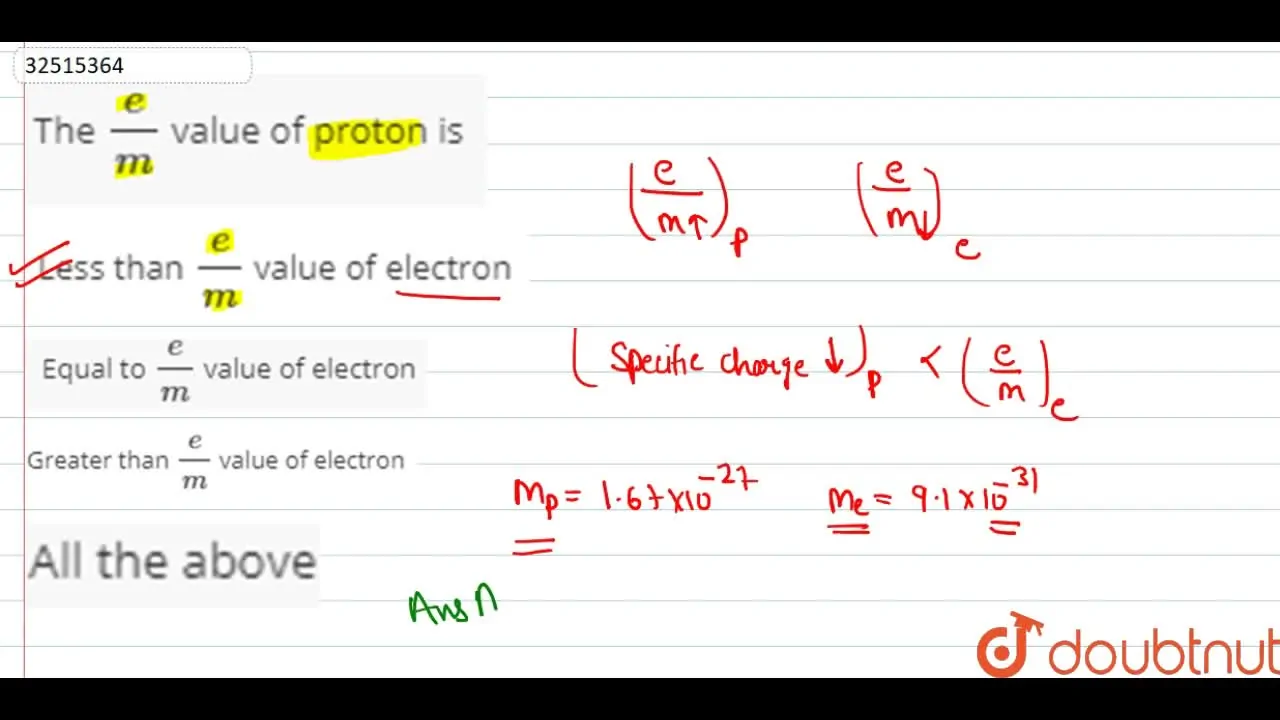 32515364
The e/m value of proton is
Less than e/m value of electron
Equal to e/m value of electron
Greater than e/m value of electron
All the above
(e/m↑)p (e/m↓)e
(Specific charge ↓)p < (e/m)e
Mp = 1.67×10⁻²⁷ Me = 9.1×10⁻³¹
Ans A
doubtnut